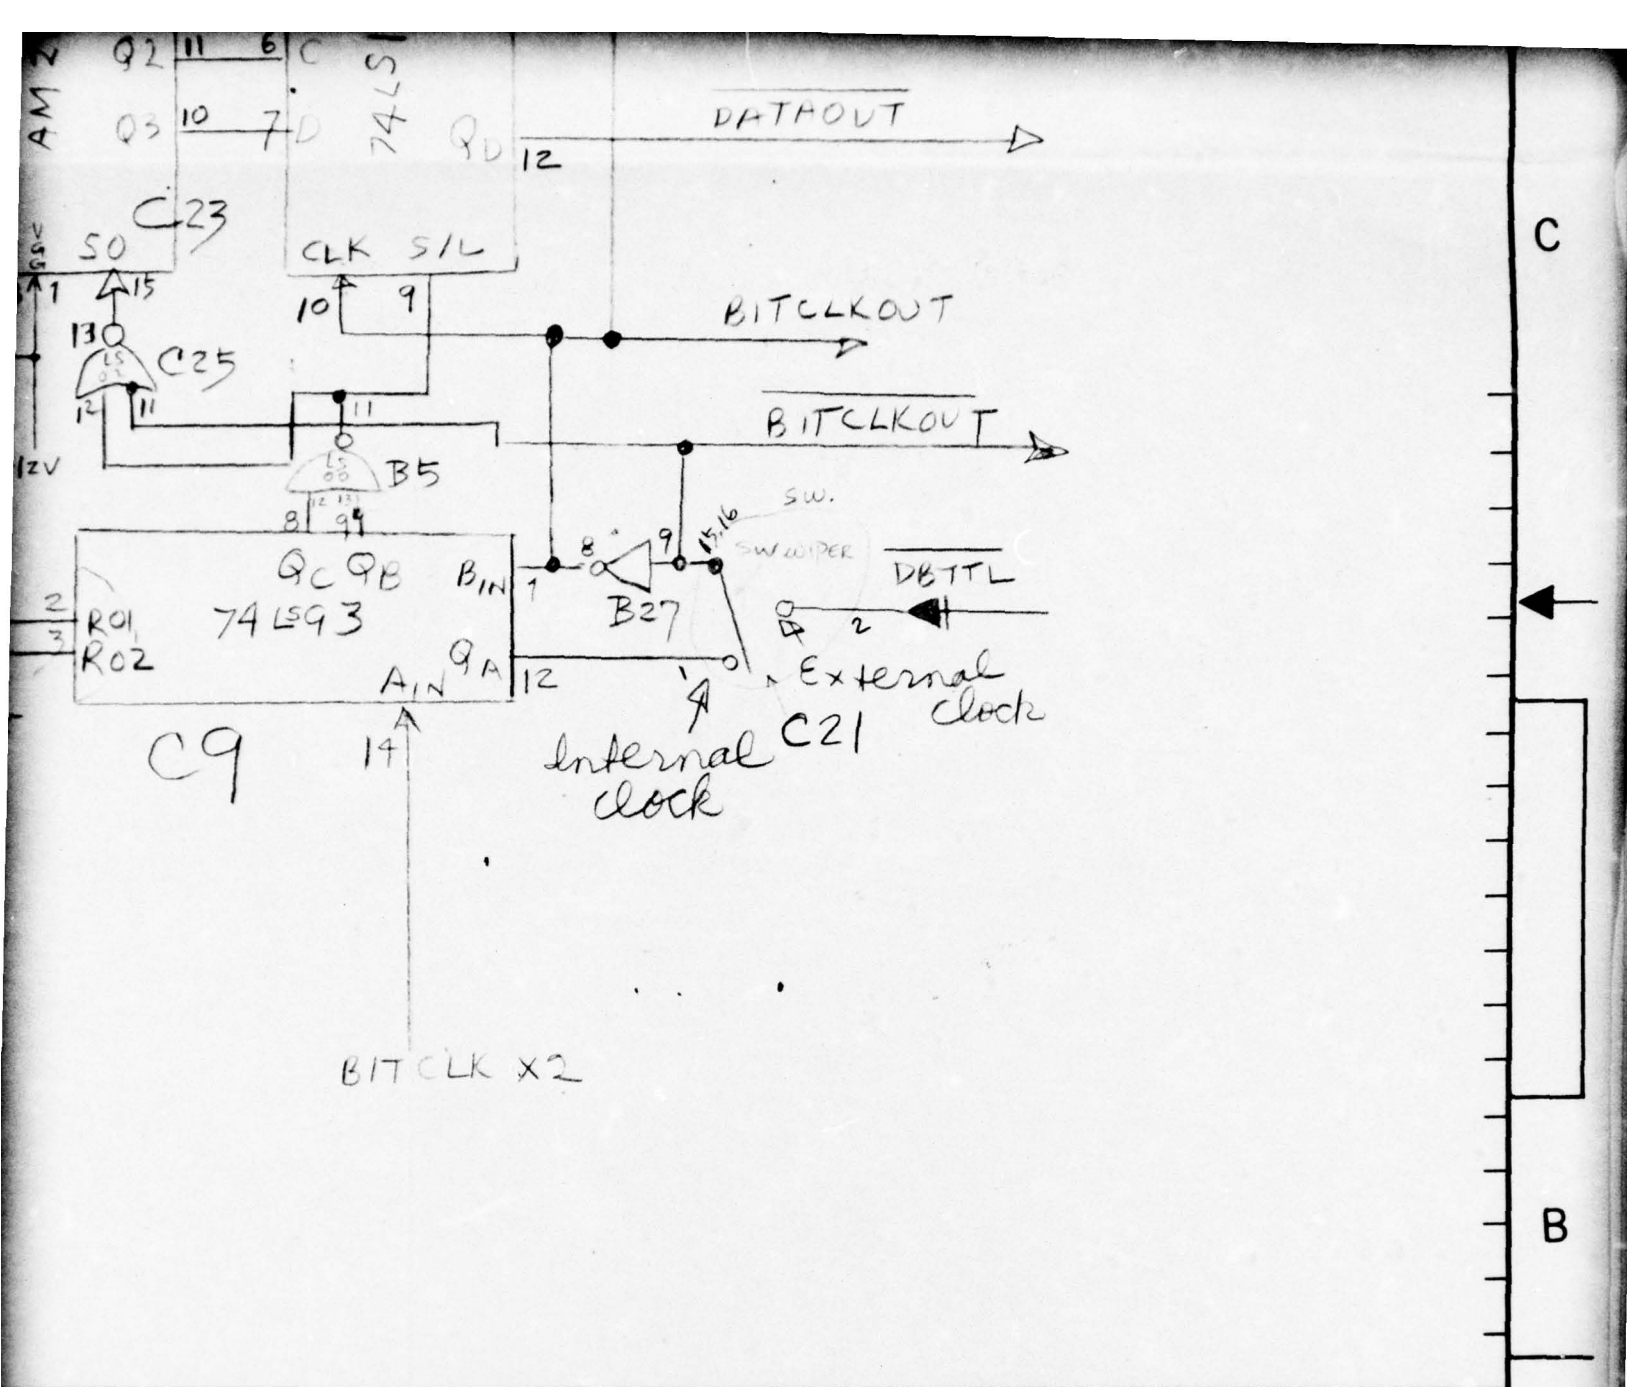 AM 2
Q2 11 6 C
74LS1
Q3 10 7 D
QD 12
DATAOUT
C23
VGG
SO
CLK S/L
1 15
10 9
BITCLKOUT
13
LS
02
C25
12 11
11
BITCLKOUT
12V
LS
00
B5
12 13
8 9
SW.
15,16
SW WIPER
QC QB
BIN 1
8 9
B27
DBTTL
2
74LS93
2 R01
3 R02
QA 12
AIN
External
Clock
C21
Internal
Clock
C9
14
BITCLK X2
C
B